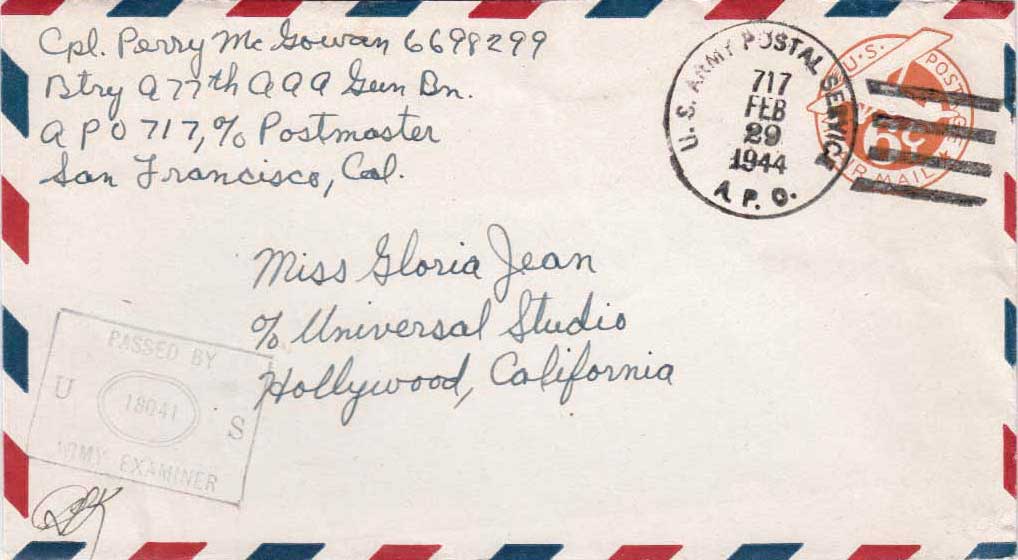 Cpl. Perry McGowan 6698299
Btry A 77th AAA Gun Bn.
APO 717, % Postmaster
San Francisco, Cal.
U.S. ARMY POSTAL SERVICE
717
FEB
29
1944
A. P. O.
U.S. POSTAGE
6¢
AIR MAIL
Miss Gloria Jean
% Universal Studio
Hollywood, California
PASSED BY
U 18041 S
ARMY EXAMINER